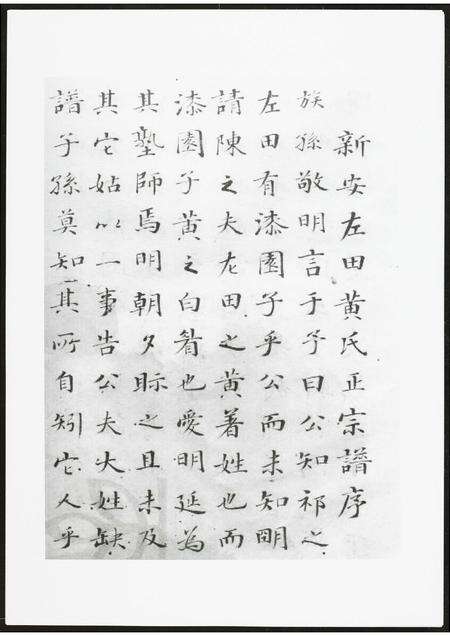 新安左田黄氏正宗譜序
族孫敬明言于予曰公知祁之
左田有漆園子乎公而未知明
請陳之夫左田之黄著姓也而
漆園子黄之白眉也愛明延為
其塾師焉明朝夕眎之且未及
其它姑以一事告公夫大姓缺
譜子孫莫知其所自矧它人乎